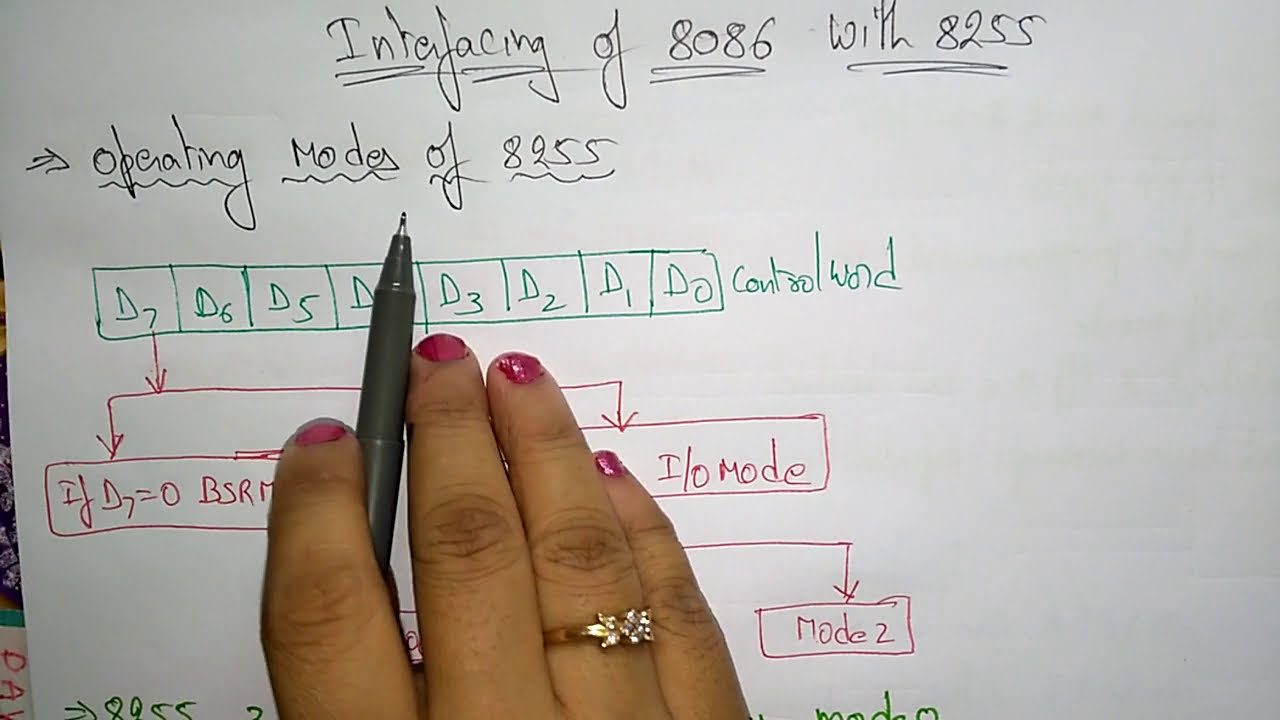 Interfacing of 8086 with 8255
⇒ Operating Modes of 8255
D7 D6 D5 D D3 D2 D1 D0 Control word
If D7=0 BSR M
I/O Mode
Mode 2
⇒ 8255
mode 0